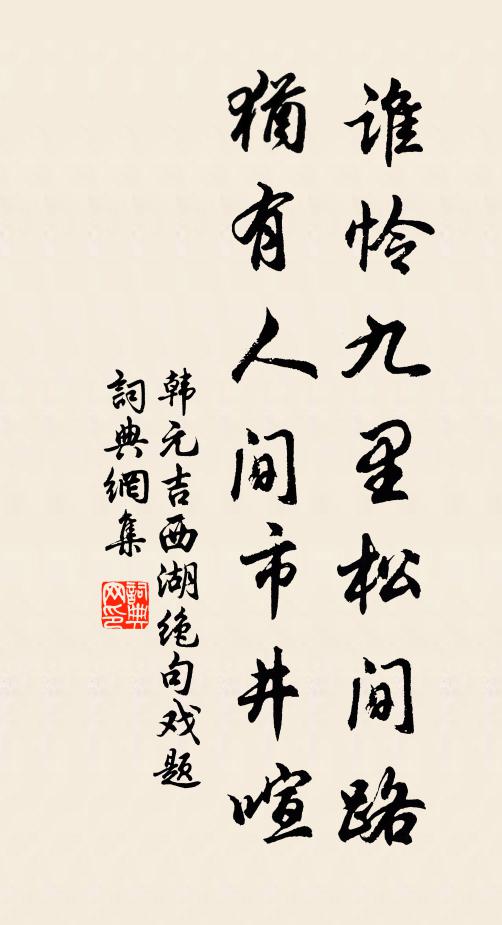 誰怜九里松间路
猶有人间市井喧
韩元吉西湖绝句戏题
詞典網集
詞典网印